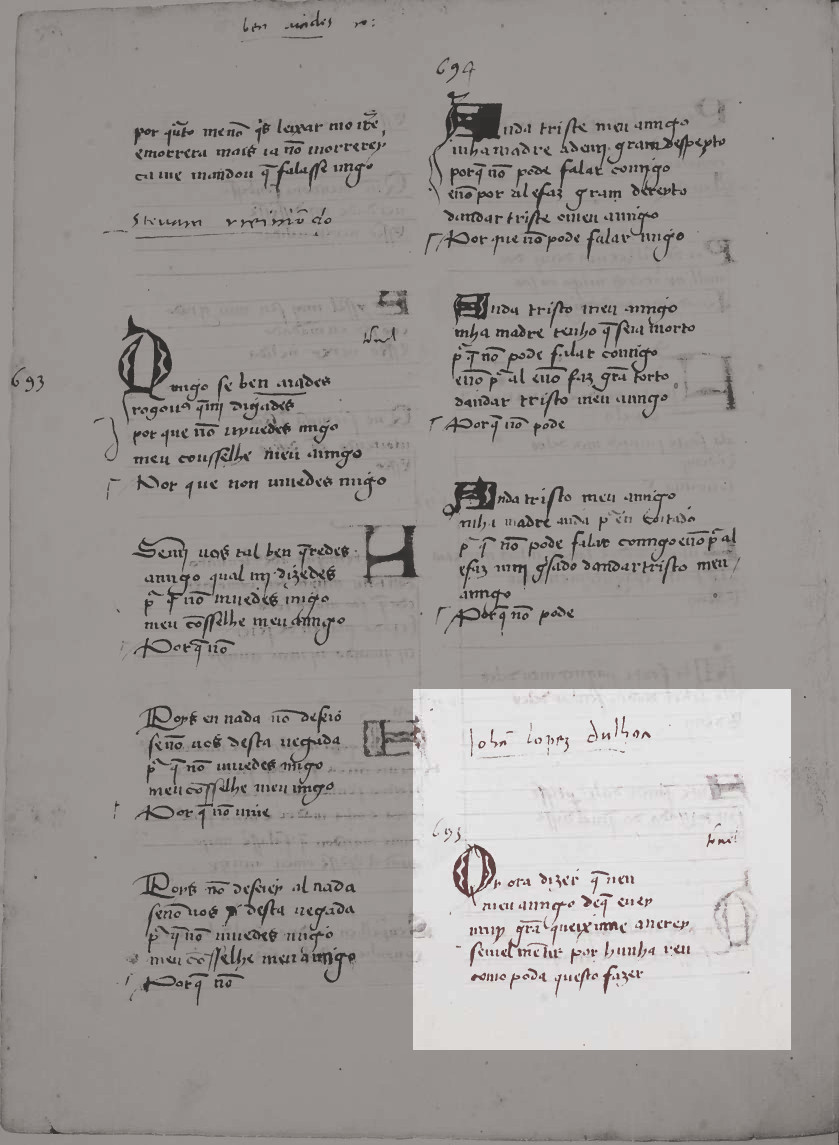 ben uides ro:
por q̃nto me nõ q̃s leixar mo irẽ,
e morrera mais ia nõ morrerey
ca me mandou q̃ falasse migo
Steuam reimõdo
693
tornel
Amigo se ben aiades
rogouꝯ q̃ mi digades
por que nõ uiuedes migo
meu consselhe meu amigo
Por que non uiuedes migo
Semj uos tal ben q̃redes
amigo qual mj dizedes
pr̃ q̃ nõ uiuedes migo
meu cõsselhe meu amigo
Por q̃ nõ
Poys en nada nõ deseio
senõ uos desta uegada
pr̃ q̃ nõ uiuedes migo
meu cõsselhe meu migo
Por q̃ nõ uiue
Poys nõ deseiey al nada
senõ uos desta uegada
pr̃ q̃ nõ uiuedes migo
meu cõsselhe meu amigo
Por q̃ nõ
694
Anda triste meu amigo
mha madre a de mj gram despeyto
por q̃ nõ pode falar comigo
e nõ por al e faz gram dereyto
dandar triste o meu amigo
Por que nõ pode falar migo
Anda tristo meu amigo
mha madre tenho q̃ seia morto
pr̃ q̃ nõ pode falar comigo
e nõ pr̃ al e nõ faz grã torto
dandar tristo meu amigo
Por q̃ nõ pode
Anda tristo meu amigo
mha madre anda pr̃ en coitado
pr̃ q̃ nõ pode falar comigo e nõ pr̃ al
e faz muj g̃sado dandar tristo meu
amigo
Por q̃ nõ pode
Johã Lopez dulhoa
695
tornel
Or ora dizer q̃ uen
meu amigo de q̃ eu ey
muy grã queixume a uerey
semel mẽtir por hunha ren
como poda questo fazer